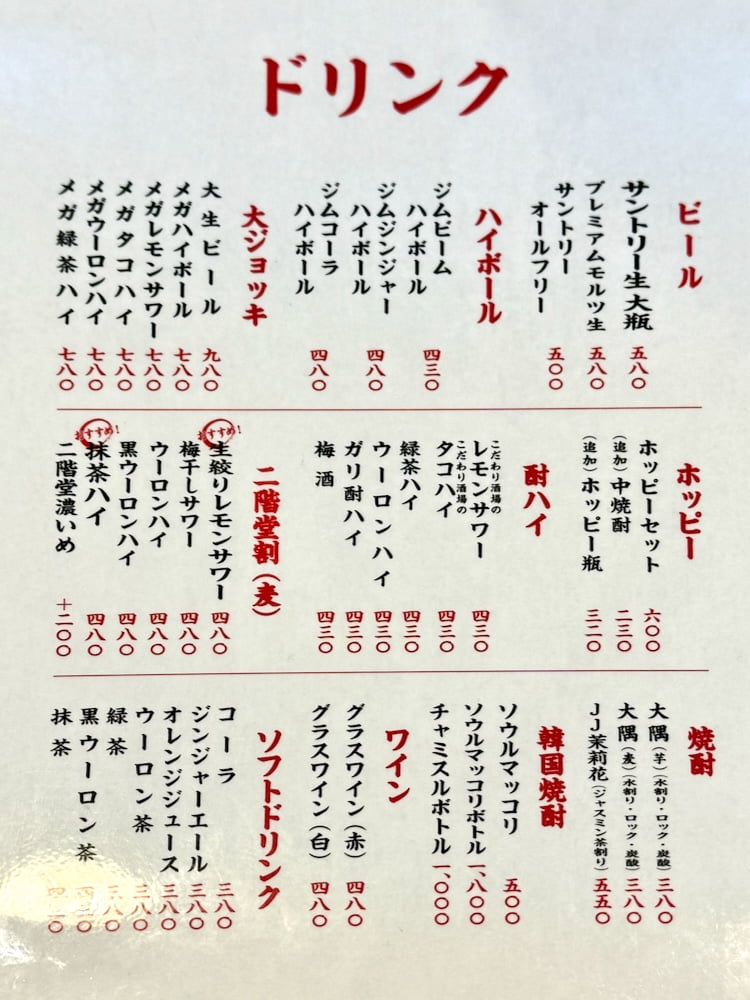 ドリンク
ビール
サントリー生大瓶 五八〇
プレミアムモルツ生 五八〇
サントリー
オールフリー 五〇〇
ハイボール
ジムビーム
ハイボール 四三〇
ジムジンジャー
ハイボール 四八〇
ジムコーラ
ハイボール 四八〇
大ジョッキ
大生ビール 九八〇
メガハイボール 七八〇
メガレモンサワー 七八〇
メガタコハイ 七八〇
メガウーロンハイ 七八〇
メガ緑茶ハイ 七八〇
ホッピー
ホッピーセット 六〇〇
（追加）中焼酎 二三〇
（追加）ホッピー瓶 三二〇
酎ハイ
こだわり酒場の
レモンサワー 四三〇
こだわり酒場の
タコハイ 四三〇
緑茶ハイ 四三〇
ウーロンハイ 四三〇
ガリ酎ハイ 四三〇
梅酒 四三〇
二階堂割（麦）
おすすめ！
生絞りレモンサワー 四八〇
梅干しサワー 四八〇
ウーロンハイ 四八〇
黒ウーロンハイ 四八〇
おすすめ！
抹茶ハイ 四八〇
二階堂濃いめ 十二〇〇
焼酎
大隅（芋）（水割り・ロック・炭酸） 三八〇
大隅（麦）（水割り・ロック・炭酸） 三八〇
JJ茉莉花（ジャスミン茶割り） 五五〇
韓国焼酎
ソウルマッコリ 五〇〇
ソウルマッコリボトル 一、八〇〇
チャミスルボトル 一、〇〇〇
ワイン
グラスワイン（赤） 四八〇
グラスワイン（白） 四八〇
ソフトドリンク
コーラ 三八〇
ジンジャーエール 三八〇
オレンジジュース 三八〇
ウーロン茶 三八〇
緑茶 三八〇
黒ウーロン茶
抹茶